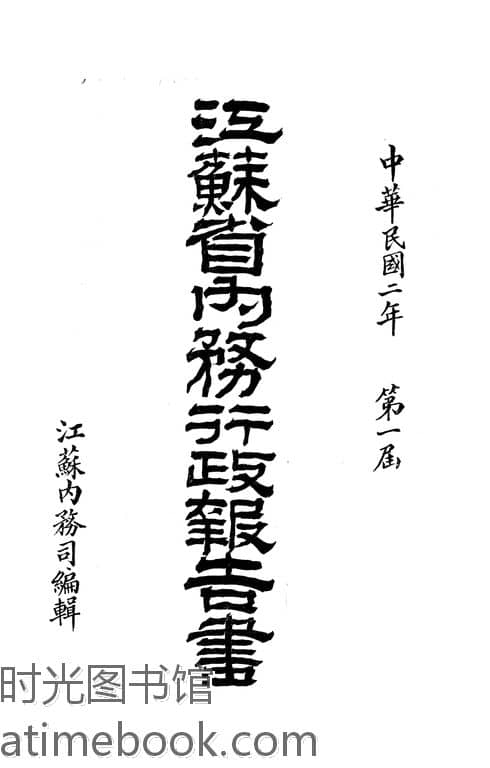 中華民國二年 第一屆
江蘇省內務行政報告書
江蘇內務司編輯
时光图书馆
atimebook.com